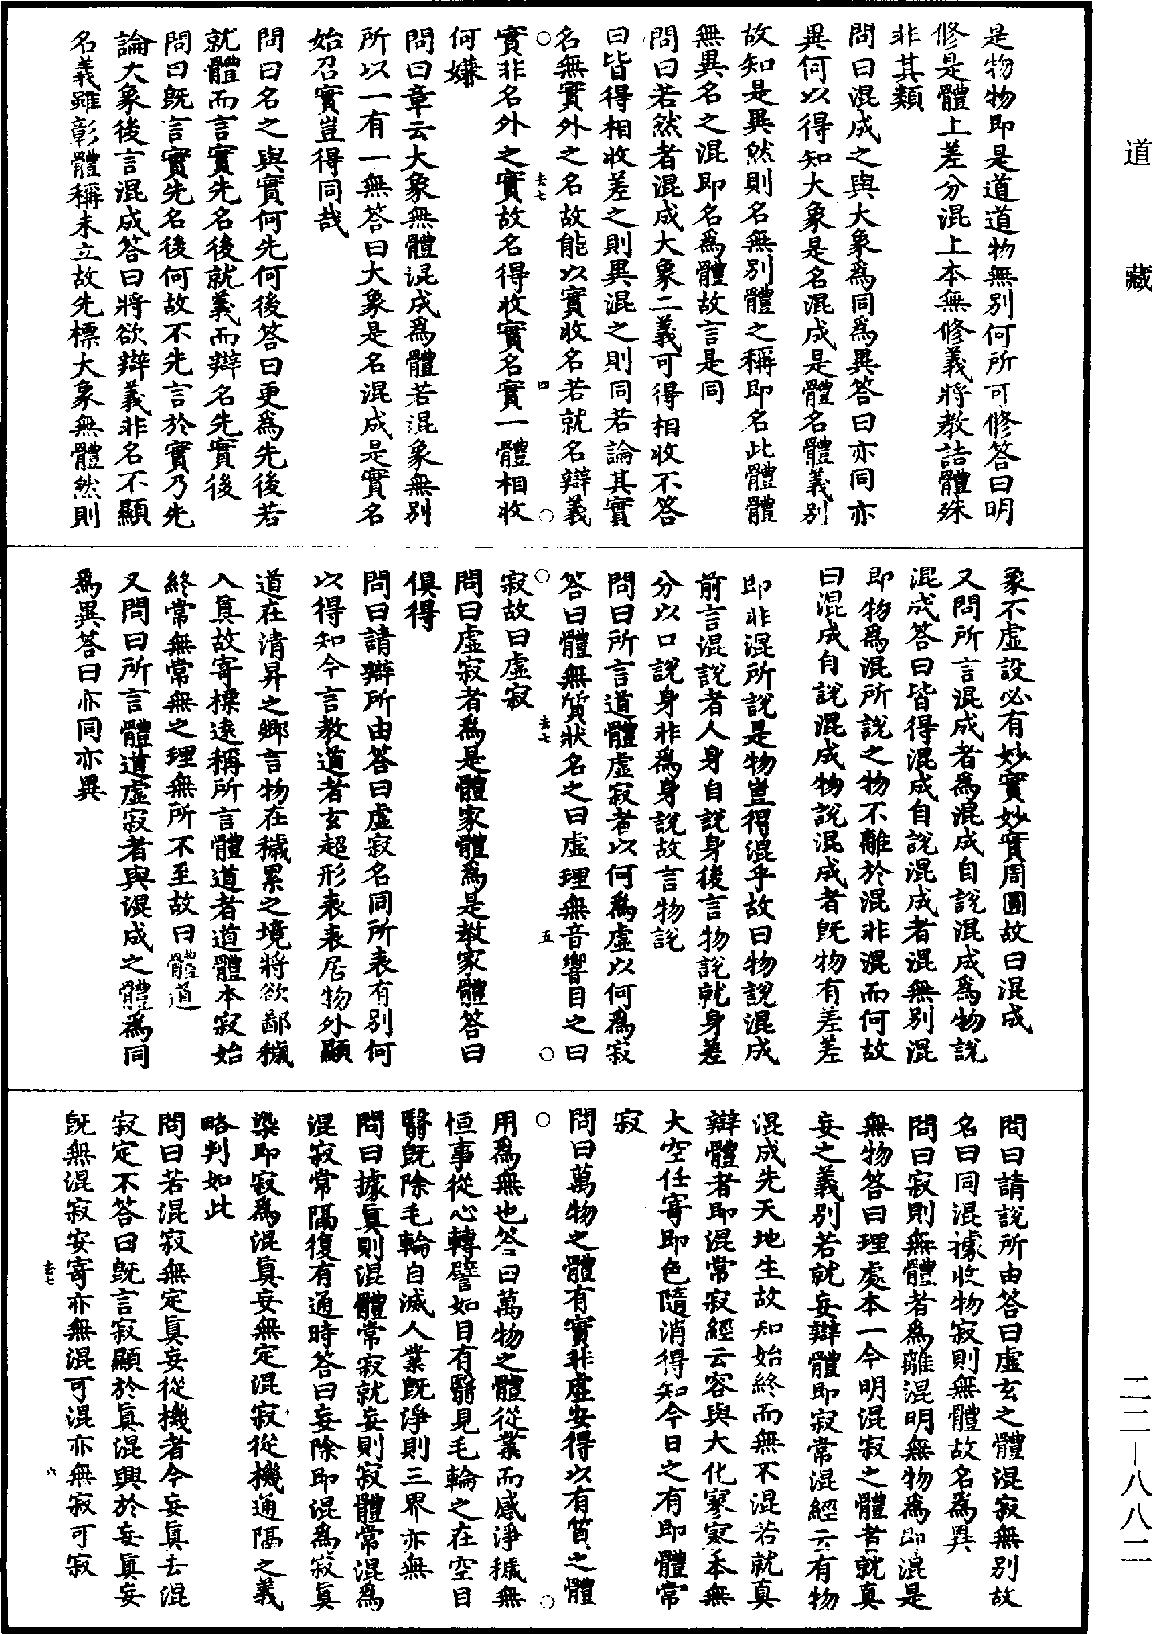 道藏
是物物即是道道物無別何所可修答曰明
修是體上差分混上本無修義將教詰體殊
非其類
問曰混成之與大象為同為異答曰亦同亦
異何以得知大象是名混成是體名體義別
故知是異然則名無別體之稱即名此體體
無異名之混即名為體故言是同
問曰若然者混成大象二義可得相收不答
曰皆得相收差之則異混之則同若論其實
名無實外之名故能以實收名若就名辯義
去七 四
實非名外之實故名得收實名實一體相收
何嫌
問曰章云大象無體混成為體若混象無別
所以一有一無答曰大象是名混成是實名
始召實豈得同哉
問曰名之與實何先何後答曰更為先後若
就體而言實先名後就義而辯名先實後
問曰既言實先名後何故不先言於實乃先
論大象後言混成答曰將欲辯義非名不顯
名義雖彰體稱未立故先標大象無體然則
象不虛設必有妙實妙實周圓故曰混成
又問所言混成者為混成自說混成為物說
混成答曰皆得混成自說混成者混無別混
即物為混所說之物不離於混非混而何故
曰混成自說混成物說混成者既物有差差
即非混所說是物豈得混乎故曰物說混成
前言混說者人身自說身後言物說就身差
分以口說身非為身說故言物說
問曰所言道體虛寂者以何為虛以何為寂
答曰體無質狀名之曰虛理無音響目之曰
去七 五
寂故曰虛寂
問曰虛寂者為是體家體為是教家體答曰
俱得
問曰請辯所由答曰虛寂名同所表有別何
以得知今言教道者玄超形表表居物外顯
道在清昇之鄉言物在穢累之境將欲鄙穢
入真故寄標遠稱所言體道者道體本寂始
終常無常無之理無所不至故曰體道
又問曰所言體道虛寂者與混成之體為同
為異答曰亦同亦異
問曰請說所由答曰虛玄之體混寂無別故
名曰同混據收物寂則無體故名為異
問曰寂則無體者為離混明無物為即混是
無物答曰理處本一今明混寂之體者就真
妄之義別若就妄辯體即寂常混經云有物
混成先天地生故知始終而無不混若就真
辯體者即混常寂經云容與大化寥寂本無
大空任寄即色隨消得知今日之有即體常
寂
問曰萬物之體有實非虛安得以有質之體
用為無也答曰萬物之體從業而感淨穢無
恒事從心轉譬如目有翳見毛輪之在空目
翳既除毛輪自滅人業既淨則三界亦無
問曰據真則混體常寂就妄則寂體常混為
混寂常隔復有通時答曰妄除即混為寂真
染即寂為混真妄無定混寂從機通隔之義
略判如此
問曰若混寂無定真妄從機者今妄真去混
寂定不答曰既言寂顯於真混興於妄真妄
既無混寂安寄亦無混可混亦無寂可寂
去七 六
二二—八八二